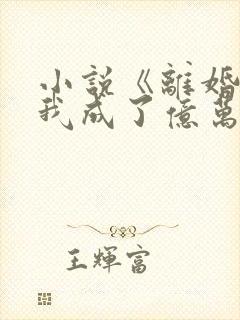 小說《離婚
我成了億萬
王輝富